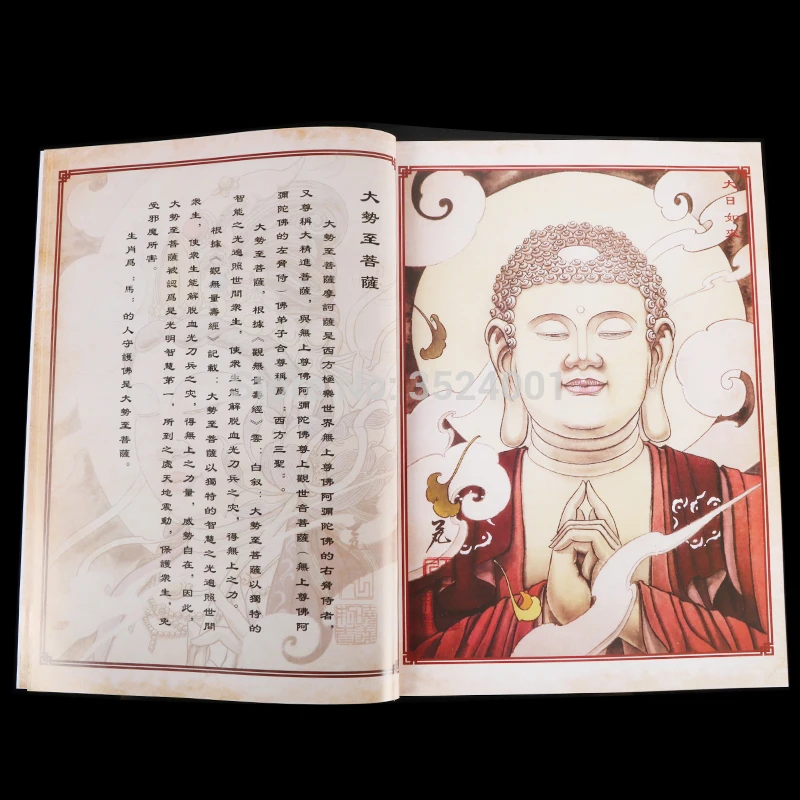 大勢至菩薩
大勢至菩薩摩訶薩是西方極樂世界無上尊佛阿彌陀佛的右脅侍者，
又尊稱大精進菩薩，與無上尊佛阿彌陀佛尊上觀世音菩薩（無上尊佛阿
彌陀佛的左脅侍）佛弟子合尊稱爲：西方三聖：。
大勢至菩薩，根據《觀無量壽經》雲：白叙：大勢至菩薩以獨特的
智能之光遍照世間衆生，使衆生能解脫血光刀兵之灾，得無上之力。
根據《觀無量壽經》記載：大勢至菩薩以獨特的智慧之光遍照世間
衆生，使衆生能解脫血光刀兵之灾，得無上之力量，威勢自在，因此，
大勢至菩薩被認爲是光明智慧第一，所到之處天地震動，保護衆生，免
受邪魔所害。
生肖爲：馬：的人守護佛是大勢至菩薩。
大日如來
3524001